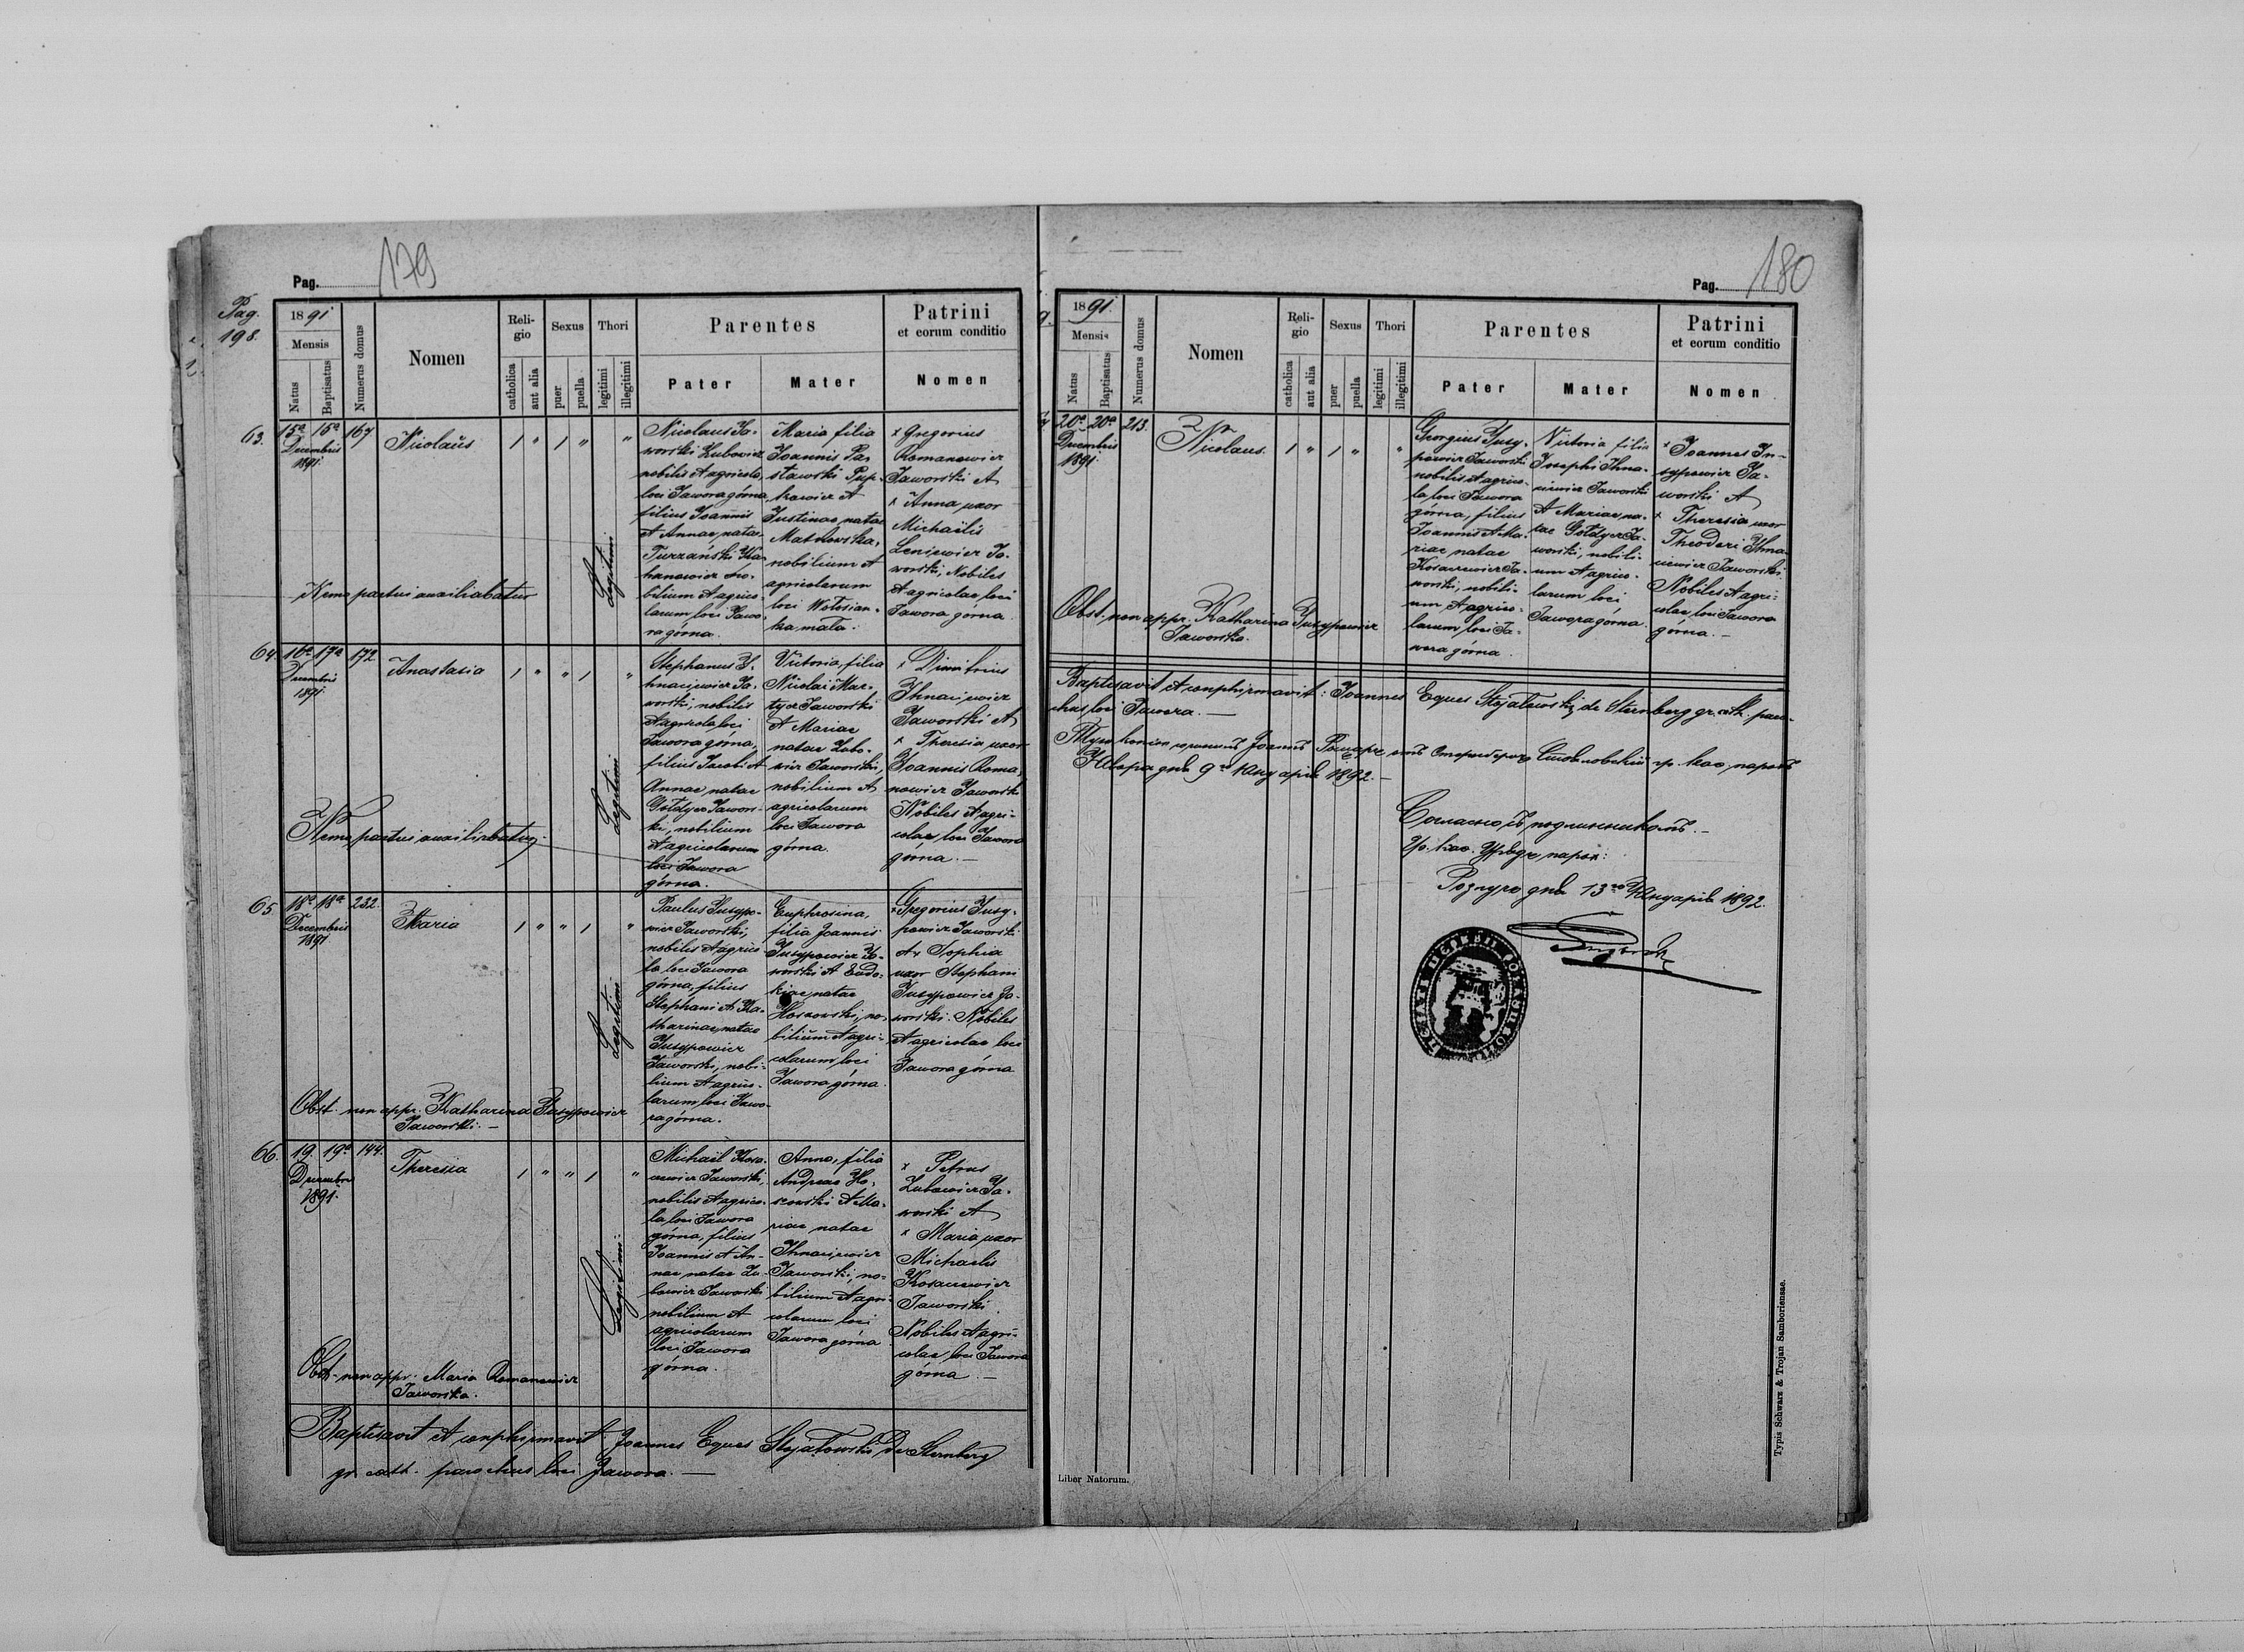 Pag. 179
Pag.
198.
1891
Mensis
Natus
Baptisatus
Numerus domus
Nomen
Religio
catholica
aut alia
Sexus
puer
puella
Thori
legitimi
illegitimi
Parentes
Pater
Mater
Patrini
et eorum conditio
Nomen
63.
15ª 16ª 167
Decembris
1891.
Nicolaus
1 " 1 " "
Legitimi
Nicolaus Ja-
worski Zubowicz
nobilis et agricola,
loci Jawora górna,
filius Joannis
et Annae natae
Turzański Ka-
hanowicz no-
bilium et agrico-
larum loci Jawo-
ra górna.
Maria filia
Joannis
Justinae natae
nobilium et
agricolarum
loci Wołosian-
ka mała.
x Gregorius
Romanowicz
Jaworski et
x Anna uxor
Michaëlis
Leniewicz Ja-
worski, Nobiles
et agricolae loci
Jawora górna
Nemo partui auxiliabatur
64.
16ª 17ª 172
Decembris
1891
Anastasia
1 " " 1 "
Legitimi
Stephanus I-
hnaciewicz Ja-
worski, nobilis
et agricola loci
Jawora górna,
filius Jacobi et
Annae natae
Gołdycz Jawors-
ki, nobilium
et agricolarum
loci Jawora
górna.
Victoria, filia
Nicolai Mar-
tycz Jaworski
et Mariae
natae Zubo-
wicz Jaworski,
nobilium et
agricolarum
loci Jawora
górna.
x Dimitrius
Ihnaciewicz
Jaworski et
x Theresia uxor
Joannis Roma-
nowicz Jaworski
Nobiles et agri-
colae loci Jawora
górna.—
Nemo partui auxiliabatur.
65.
18ª 18ª 232.
Decembris
1891
Maria
1 " " 1 "
Legitimi
Paulus Jusypo-
wicz Jaworski,
nobilis et agrico-
la loci Jawora
górna, filius
Stephani et Ka-
tharinae, natae
Jusypowicz
Jaworski, nobi-
lium et agrico-
larum loci Jawo-
ra górna.
Euphrosina,
filia Joannis
Jusypowicz Ja-
worski et Eudo-
kiae natae
Hoszowski, no-
bilium et agri-
colarum loci
Jawora górna.
x Gregorius Jusy-
powicz Jaworski
et x Sophia
uxor Stephani
Jusypowicz Ja-
worski. Nobiles
et agricolae loci
Jawora górna
Obst. non appr. Katharina Jusypowicz
Jaworski.—
66.
19. 19ª 144.
Decembris
1891.
Theresia
1 " " 1 "
Legitimi.
Michaël Kosa-
cewicz Jaworski,
nobilis et agrico-
la loci Jawora
górna, filius
Joannis et An-
nae natae Zu-
bowicz Jaworski
nobilium et
agricolarum
loci Jawora
górna.
Anna, filia
Andreae Ho-
szowski et Ma-
riae natae
Ihnaciewicz
Jaworski, no-
bilium et agri-
colarum loci
Jawora górna
x Petrus
Zubowicz Ja-
worski et
x Maria, uxor
Michaelis
Kosacewicz
Jaworski.
Nobiles et agri-
colae loci Jawora
górna.—
Obst. non appr. Maria Romanowicz
Jaworska.
Baptisavit et confirmavit: Joannes Eques Stojałowski de Sternberg
gr. cath. parochus loci Jawora.—
Pag. 180
1891.
Mensis
Natus
Baptisatus
Numerus domus
Nomen
Religio
catholica
aut alia
Sexus
puer
puella
Thori
legitimi
illegitimi
Parentes
Pater
Mater
Patrini
et eorum conditio
Nomen
20ª 20ª 213.
Decembris
1891.
Nicolaus.
1 " 1 " "
Georgius Jusy-
powicz Jaworski
nobilis et agrico-
la loci Jawora
górna, filius
Joannis et Ma-
riae natae
Kosacewicz Ja-
worski, nobili-
um et agrico-
larum loci Ja-
wora górna.
Victoria filia
Josephi Ihna-
ciewicz Jaworski
et Mariae na-
tae Gołdycz Ja-
worski, nobili-
um et agrico-
larum loci
Jawora górna.
x Joannes Ju-
sypowicz Ja-
worski et
x Theresia uxor
Theodori Ihna-
ciewicz Jaworski.
Nobiles et agri-
colae loci Jawora
górna.—
Obst. non appr. Katharina Jusypowicz
Jaworska.
Baptisavit et confirmavit: Joannes Eques Stojałowski de Sternberg gr. cath. paro-
chus loci Jawora.—
Явора днѣ 9го Януарія 1892.—
Согласно съ подлинникомъ.—
Гр. кат. Урядъ парох:
Розлуч днѣ 13го Януарія 1892.
Typis Schwarz & Trojan Samboriensae.
Liber Natorum.